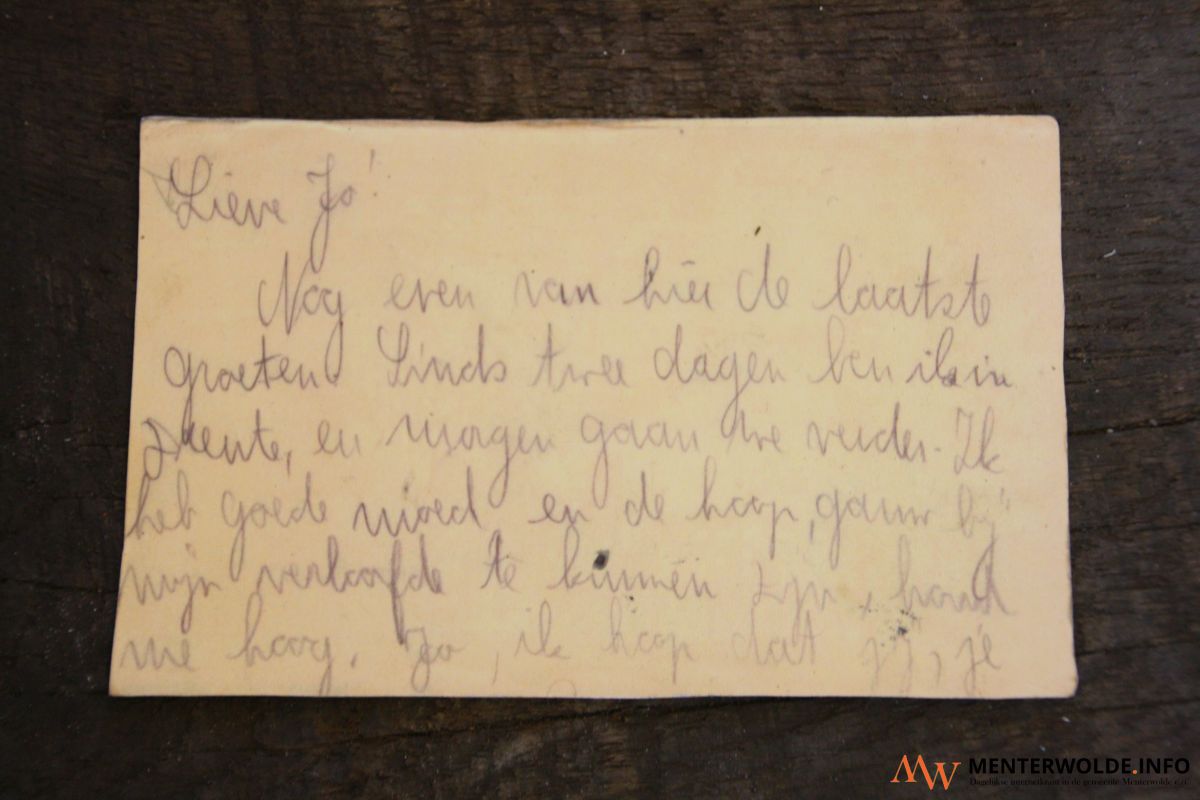 Lieve Jo!
Nog even van hier de laatste
groeten. Sinds twee dagen ben ik in
Drente, en morgen gaan we verder. Ik
heb goede moed en de hoop, gauw bij
mijn verloofde te kunnen zijn, houd
me hoog. Jo, ik hoop dat jij, je
MW MENTERWOLDE.INFO
Dagelijkse internetkrant in de gemeente Menterwolde e.o.